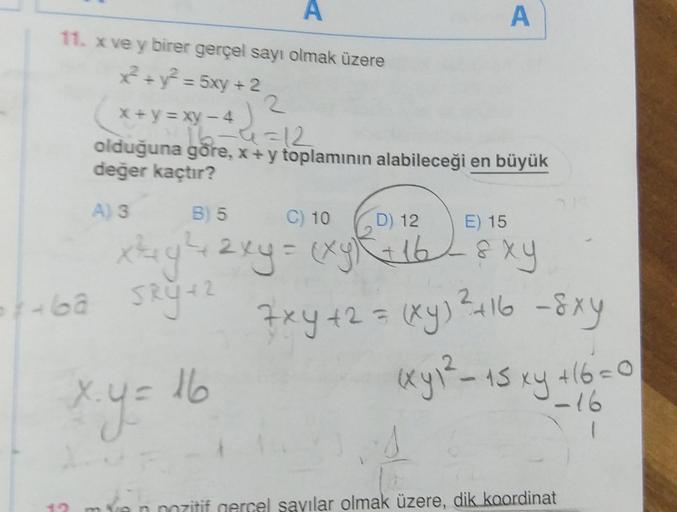 A A
11. x ve y birer gerçel sayı olmak üzere
x² + y² = 5xy + 2
(x + y = xy – 4)²
16-4=12
olduğuna göre, x + y toplamının alabileceği en büyük
değer kaçtır?
A) 3 B) 5 C) 10 D) 12 E) 15
x²+y²+2xy = (xy)²+16-8xy
5xy+2
7xy+2 = (xy)²+16 -8xy
(xy)²-15xy+16=0
-16
1
x.y= 16
12. m ve n pozitif gerçel sayılar olmak üzere, dik koordinat